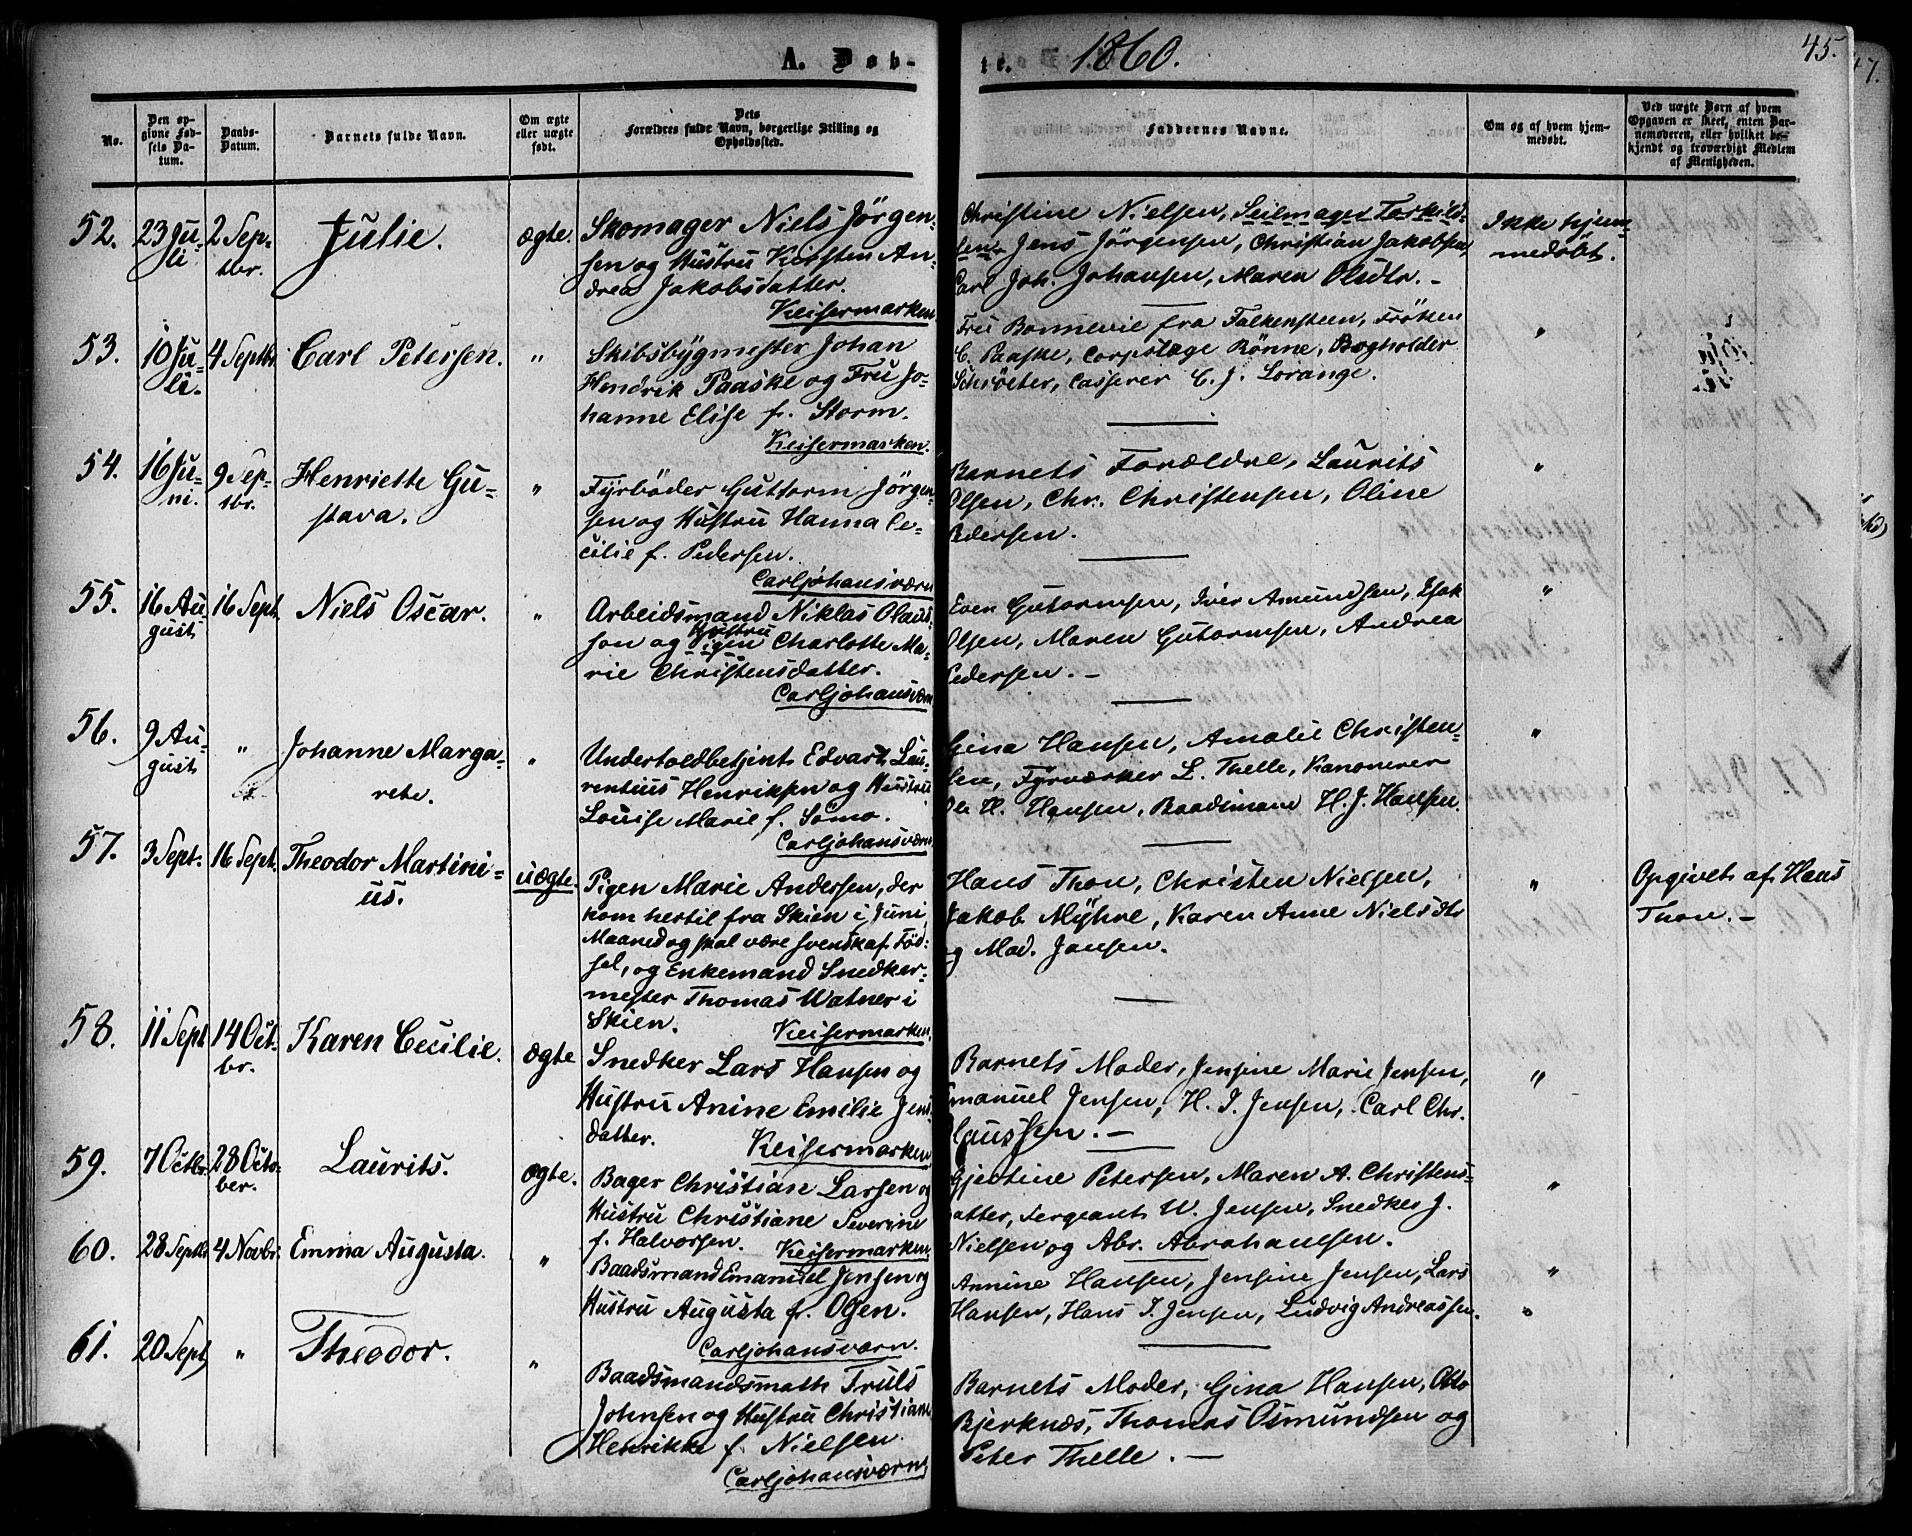 A. Døb-
te. 1860.
45.
No.
Den op-
givne Fød-
sels Da-
tum.
Daabs-
Datum.
Barnets fulde Navn.
Om ægte
eller uægte
født.
Dets
Forældres fulde Navn, borgerlige Stilling og
Opholdssted.
Faddernes Navne.
Om og af hvem hjem-
medøbt.
Ved uægte Børn af hvem
Opgaven er skeet, enten Bar-
nemoderen, eller hvilket be-
kjendt og troværdigt Medlem
af Menigheden.
52.
23 Ju-
li
2 Sep-
tbr.
Julie.
ægte.
Skomager Niels Jörgen-
sen og Hustru Kirsten An-
drea Jakobsdatter.
Keisermarken
Christine Nielsen, Seilmager Torkild-
sen, Jens Jörgensen, Christian Jakobsen,
Carl Joh. Johansen, Maren Olsdtr. -
Ikke hjem-
medöbt.
53.
10 Ju-
li.
4 Septbr.
Carl Petersen.
"
Skibsbygmester Johan
Hendrik Paaske og Fru Jo-
hanne Elise f. Storm.
Keisermarken.
Fru Bonnevie fra Falkensteen, Fröken
C. Paaske, Corpslæge Rönne, Bogholder
Schröeter, Casserer C. J. Lorange.
"
54.
16 Ju-
ni.
9 Sep-
tbr.
Henriette Gu-
stava.
"
Fyrböder Guttorm Jörgen-
sen og Hustru Hanna Ce-
cilie f. Pedersen.
Carljohansværn
Barnets Forældre, Laurits
Olsen, Chr. Christensen, Oline
Pedersen.
"
55.
16 Au-
gust
16 Sept.
Niels Oscar.
"
Arbeidsmand Niklas Olaus-
son og Hustru Pigen Charlotte Ma-
rie Christensdatter.
Carljohansværn
Even Gutormsen, Iver Amundsen, Isak
Olsen, Maren Gutormsen, Andrea
Pedersen. -
"
56.
9 Au-
gust
"
Johanne Marga-
rete.
"
Undertoldbetjent Edvart Lau-
rentius Henriksen og Hustru
Louise Marie f. Somo.
Carljohansværn
Gina Hansen, Amalie Christen-
sen, Fyrværker L. Thelle, Kanonerer
Ole H. Hansen, Baadsmand H. J. Hansen.
"
57.
3 Sept.
16 Sept.
Theodor Martini-
us.
uægte.
Pigen Marie Andersen, der
kom hertil fra Skien i Juni
Maaned og skal være svensk af Föd-
sel, og Enkemand Snedker-
mester Thomas Watner i
Skien.
Keisermarken.
Hans Thon, Christen Nielsen,
Jakob Myhre, Karen Anne Nielsdtr
og Mad. Jansen.
"
Opgivet af Hans
Thon. -
58.
11 Sept
14 Oct-
br.
Karen Cecilie.
ægte
Snedker Lars Hansen og
Hustru Anine Emilie Jens-
datter.
Keisermarken
Barnets Moder, Jensine Marie Jensen,
Emanuel Jensen, H. J. Jensen, Carl Chr.
Claussen. -
"
59.
7 Octbr.
28 Octo-
ber.
Laurits.
ægte.
Bager Christian Larsen og
Hustru Christiane Severine
f. Halvorsen.
Keisermarken
Gjertine Petersen, Maren A. Christens-
datter, Sergeant W. Jensen, Snedker J.
Nielsen og Abr. Abrahamsen.
"
60.
28 Septbr
4 Novbr.
Emma Augusta.
"
Baadsmand Emanuel Jensen og
Hustru Augusta f. Ogen.
Carljohansværn.
Annine Hansen, Jensine Jensen, Lars
Hansen, Hans J. Jensen, Ludvig Andreassen.
"
61.
20 Sept
"
Theodor.
"
Baadsmandsmath Truls
Johnsen og Hustru Christiane
Henrikke f. Nielsen.
Carljohansværn
Barnets Moder, Gina Hansen, Otto
Bjerknæs, Thomas Osmundsen og
Peter Thelle. -
"